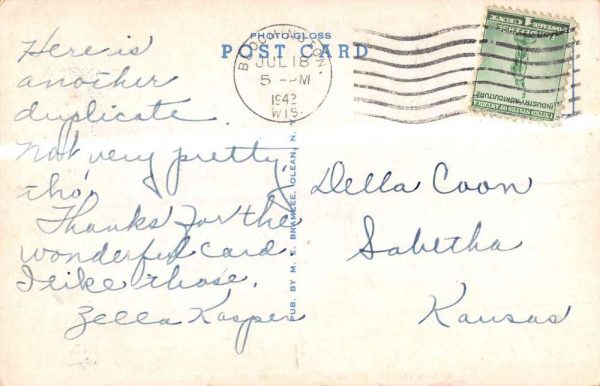 PHOTO-GLOSS
POST CARD
JUL 18
5 -- M
1942
WIS.
UNITED STATES OF AMERICA
INDUSTRY AGRICULTURE
FOR DEFENSE
Here is
another
duplicate.
Not very pretty,
tho'.
Thanks for the
wonderful card.
I like those.
Zella Kasper
PUB. BY M. E. BRUMLEE, OLEAN, N.Y.
Della Coon
Sabetha
Kansas